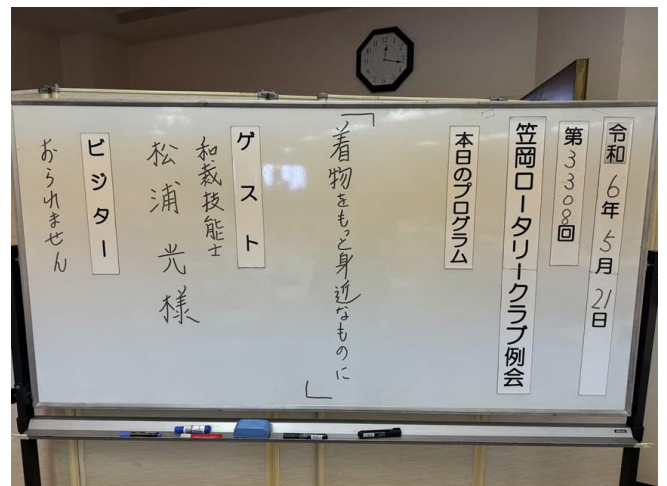 令和6年5月21日
第3308回
笠岡ロータリークラブ例会
本日のプログラム
「着物をもっと身近なものに」
ゲスト
和裁技能士
松浦光様
ビジター
おられません